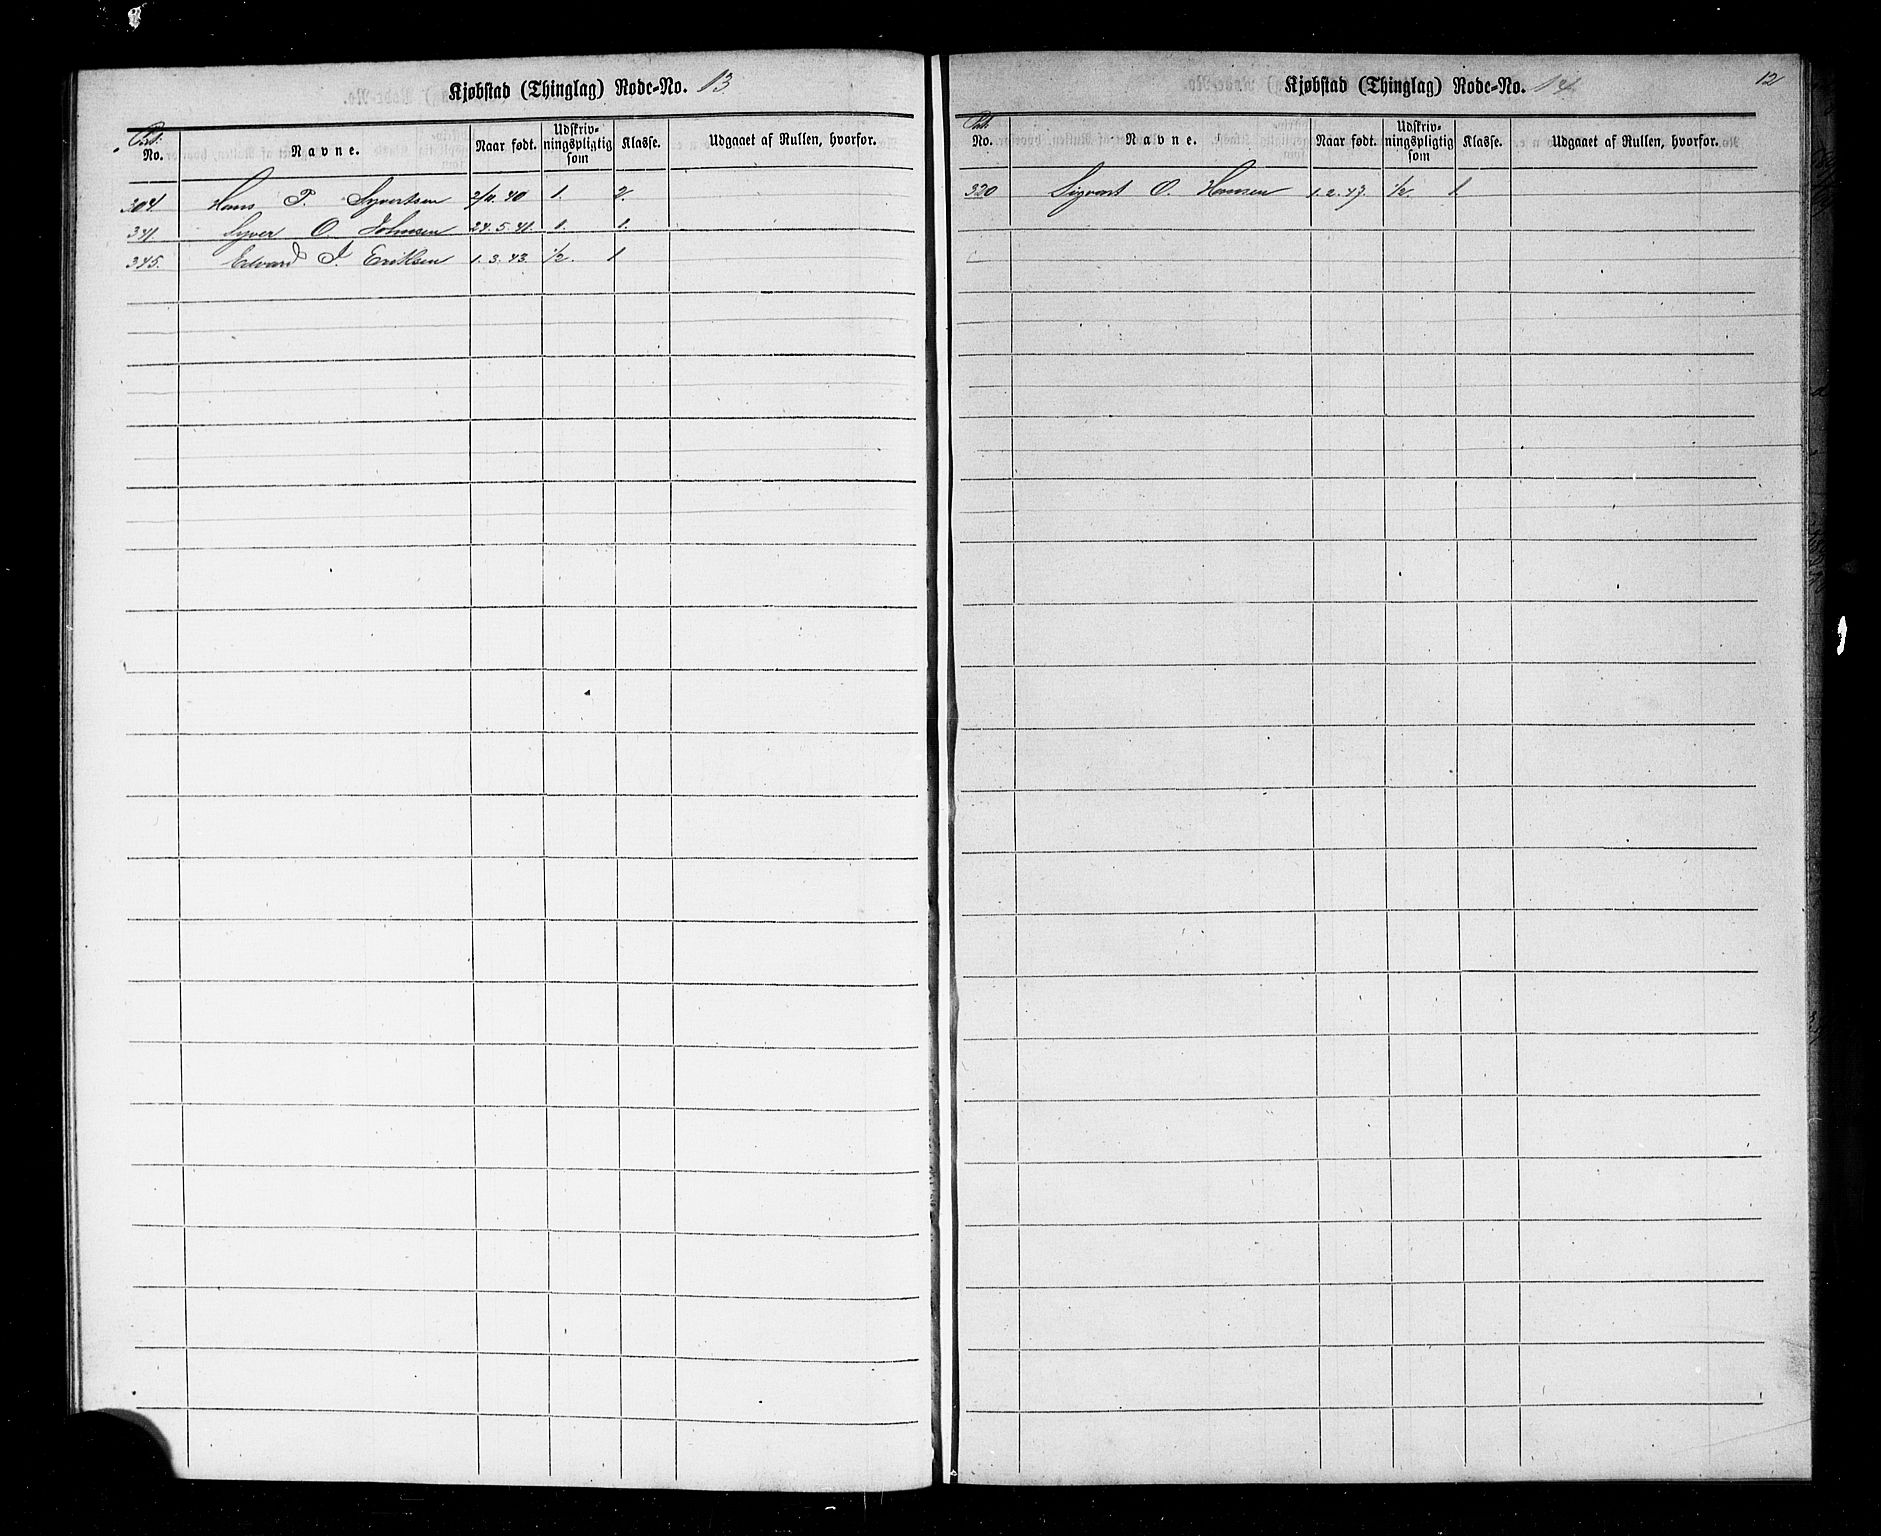 Kjøbstad (Thinglag) Rode-No. 13
No. Navne. Naar født. Udskriv-ningspligtig som Klasse. Udgaaet af Rullen, hvorfor.
304 Hans P. Syvertsen 2/11. 40 1. 2.
341. Syver O. Johnsen 24. 5. 41. 1. 1.
345. Edvard J. Eriksen 1. 3. 43. 1/2. 1
Kjøbstad (Thinglag) Rode-No. 14
12
No. Navne. Naar født. Udskriv-ningspligtig som Klasse. Udgaaet af Rullen, hvorfor.
320 Sigvart O. Hansen 1. 2. 47. 1/2. 1.